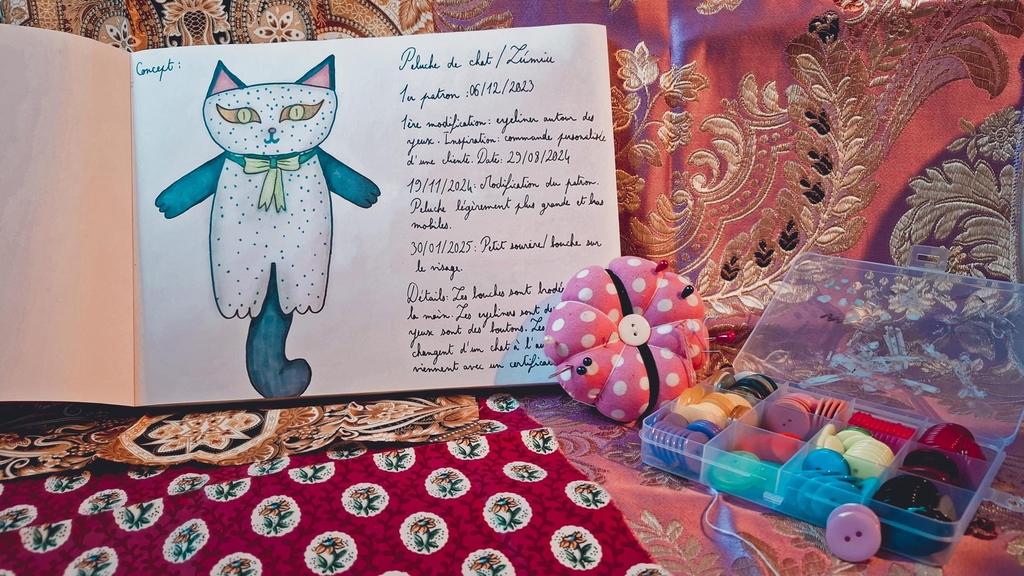 Concept :
Peluche de chat / Zürmiu
1er patron : 06/12/2023
1ère modification : eyeliner autour des
yeux. Inspiration : commande personalisée
d'une cliente. Date : 29/08/2024
19/11/2024 : Modification du patron.
Peluche légèrement plus grande et bras
mobiles.
30/01/2025 : Petit sourire / bouche sur
le visage.
Détails : Les bouches sont brodé
la main. Les eyeliners sont
yeux sont des boutons. Les
changent d'un chat à l'au
viennent avec un certifica